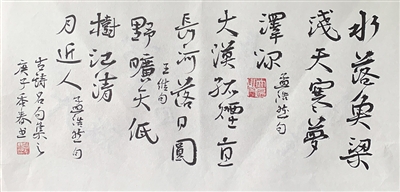 水落魚梁
淺天寒夢
澤深 孟浩然句
大漠孤煙直
長河落日圓
王維句
野曠天低
樹江清
月近人 孟浩然句
古詩名句集之
庚子季春